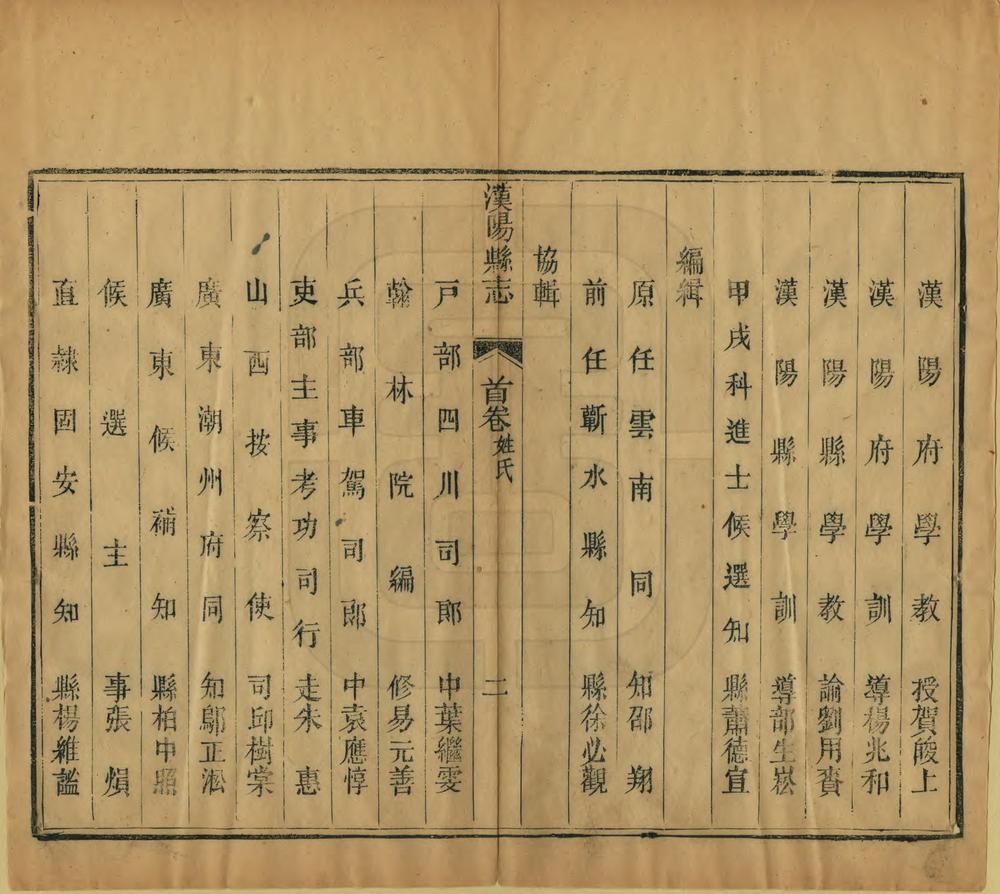 漢陽府學教授賀燮上
漢陽府學訓導楊兆和
漢陽縣學教諭劉用賓
漢陽縣學訓導部生崧
甲戌科進士候選知縣蕭德宣
編緝
原任雲南同知邵翔
前任蘄水縣知縣徐必觀
協輯
漢陽縣志
首卷姓氏
二
戸部四川司郎中葉繼雯
翰林院編修易元善
兵部車駕司郎中袁應惇
吏部主事考功司行走朱惠
山西按察使司邱樹棠
廣東潮州府同知鄔正淞
廣東候補知縣柏中照
候選主事張熉
直隸固安縣知縣楊維謐